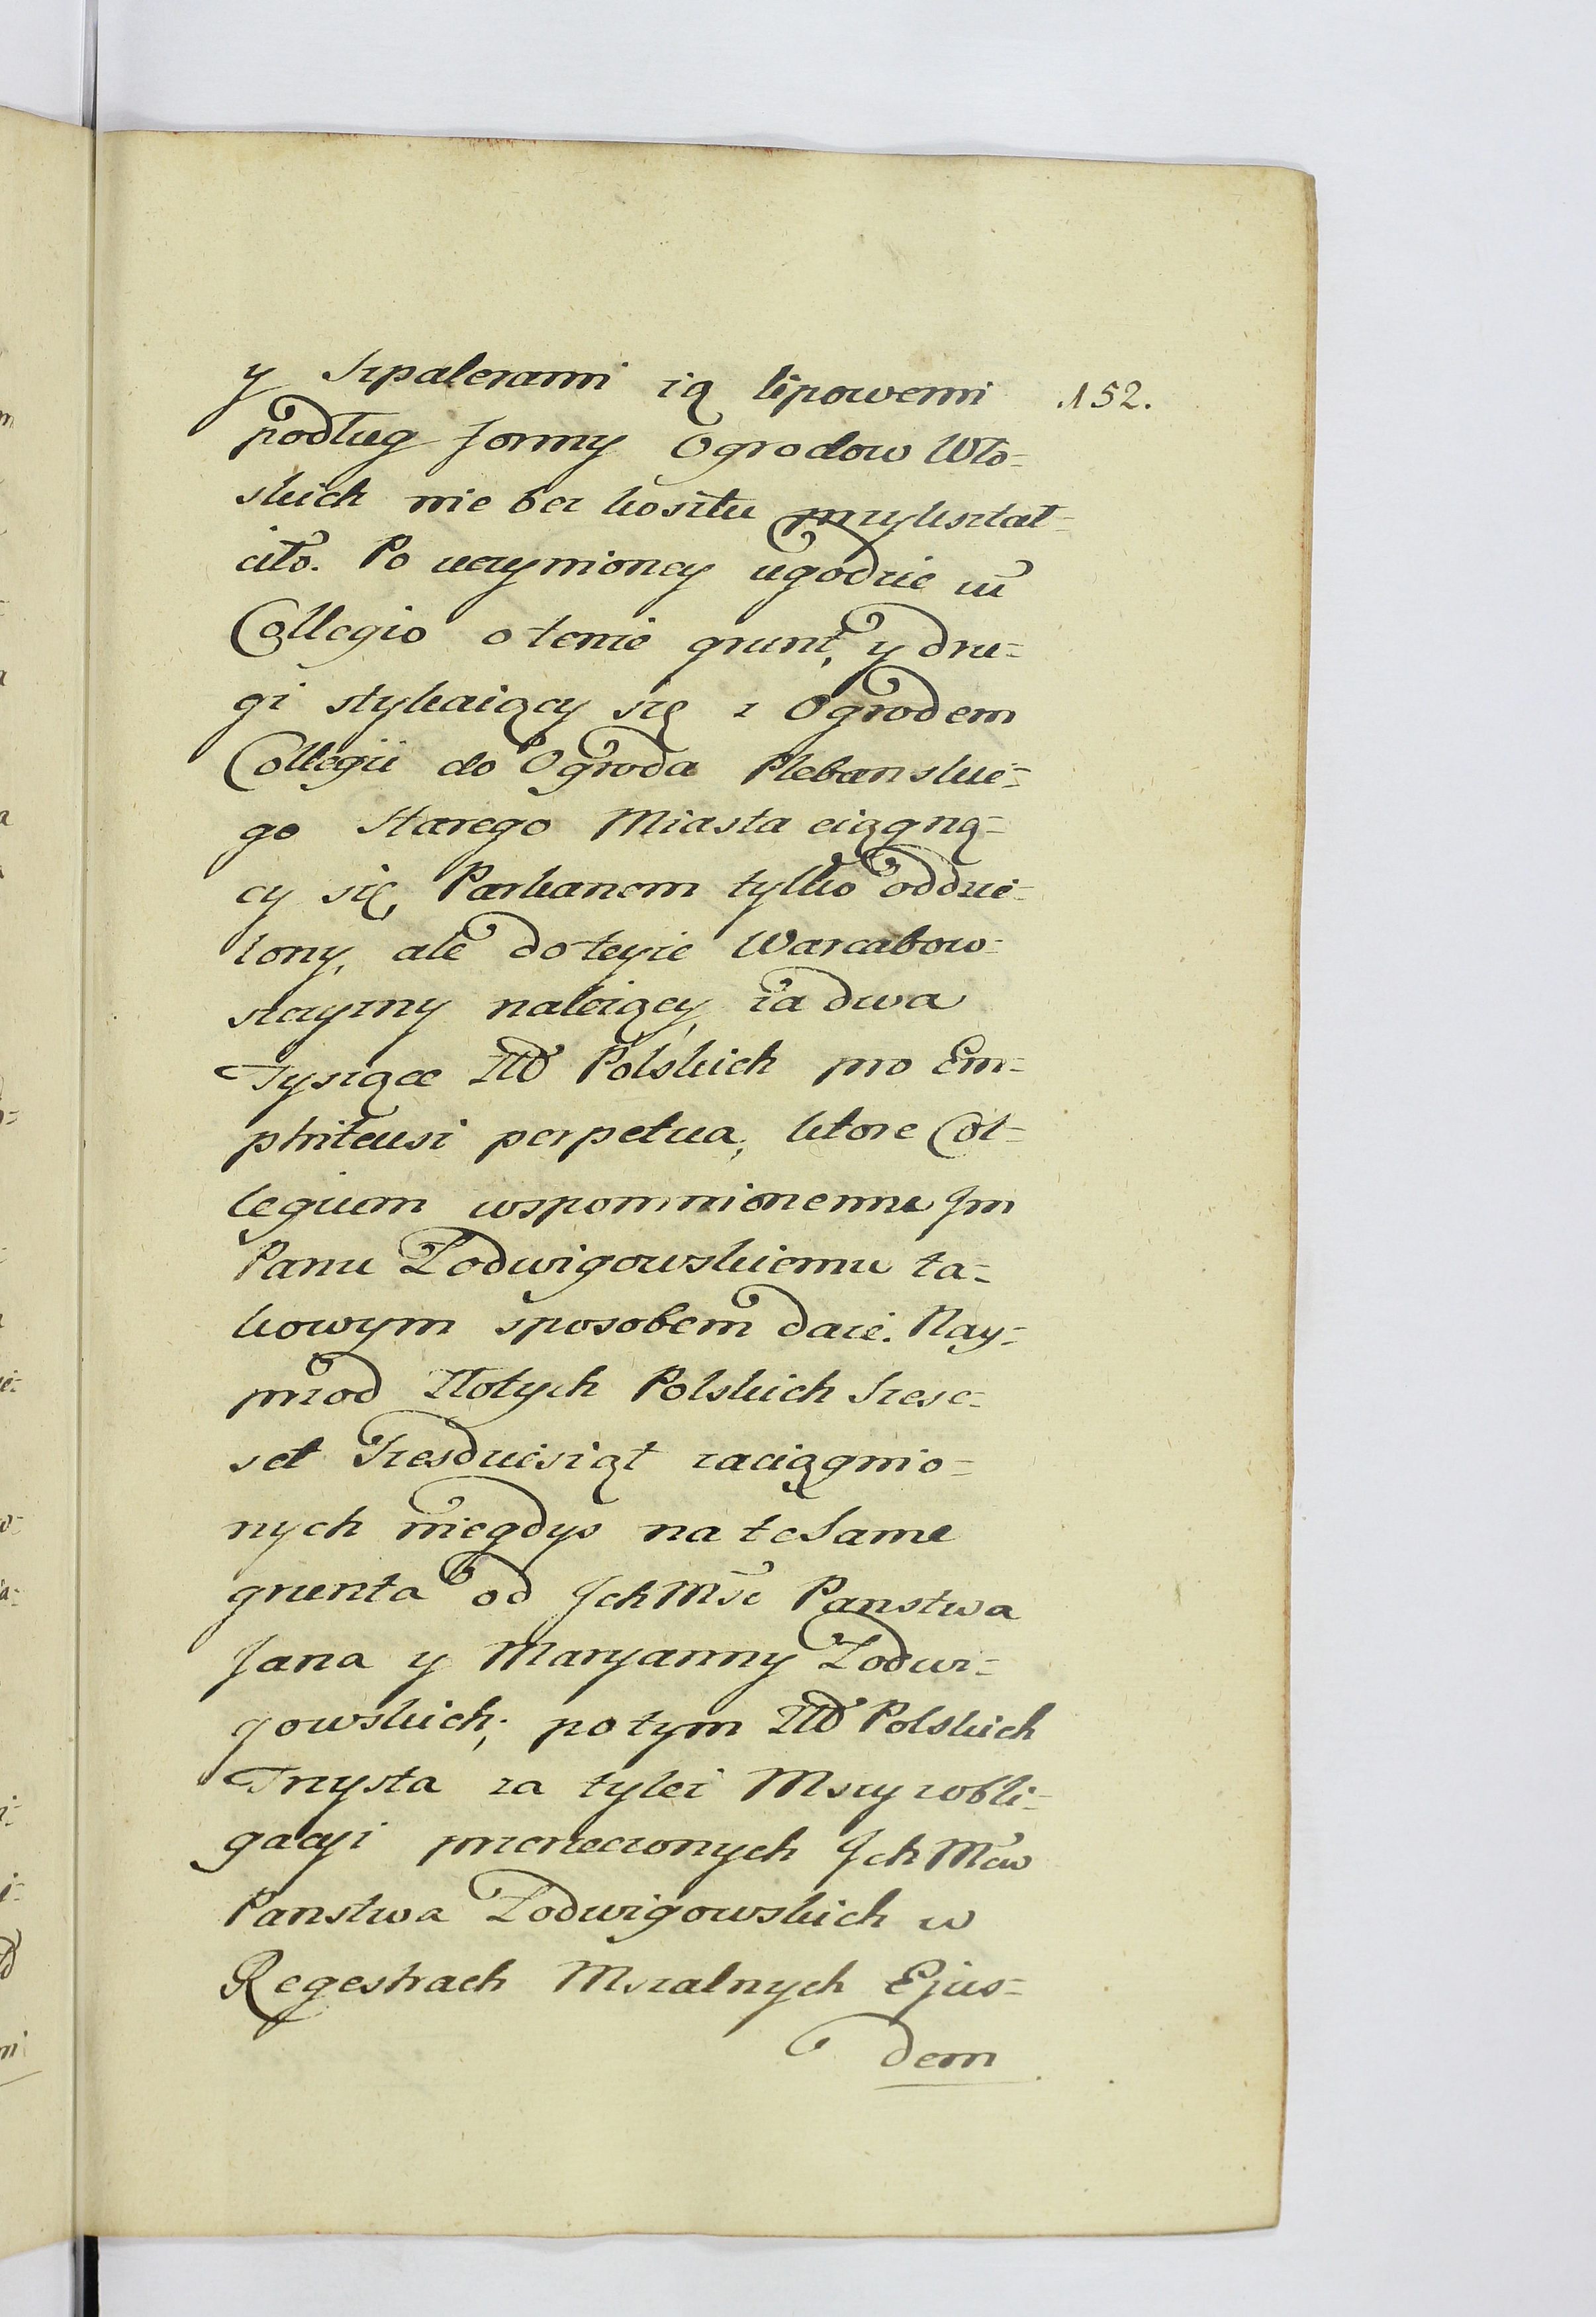 y szpalerami ią lipowemi
152.
podług formy Ogrodow Wło=
skich nie bez kosztu przykształ=
ciło. Po uczynioney ugodzie in
Collegio o tenże grunt, y dru=
gi stykaiący się z Ogrodem
Collegii do Ogroda Plebanskie=
go Starego Miasta ciągną=
cy się, Parkanem tylko oddzie=
lony, ale do teyże Warcabow=
szczyzny należący, za dwa
Tysiące Złł Polskich pro Em=
phiteusi perpetua, ktore Col=
legium wspomnionemu Jm
Panu Zodwigowskiemu ta=
kowym sposobem daie. Nay=
przod Złotych Polskich Szesc=
set Szesdziesiąt zaciągnio=
nych niegdys na te Same
grunta od Jch Msc Panstwa
Jana y Maryanny Zodwi=
gowskich; potym Złł Polskich
Trzysta za tyleż Mszy z obli=
gacyi przerzeczonych Jch Mcw
Panstwa Zodwigowskich w
Regestrach Mszalnych Ejus=
dem